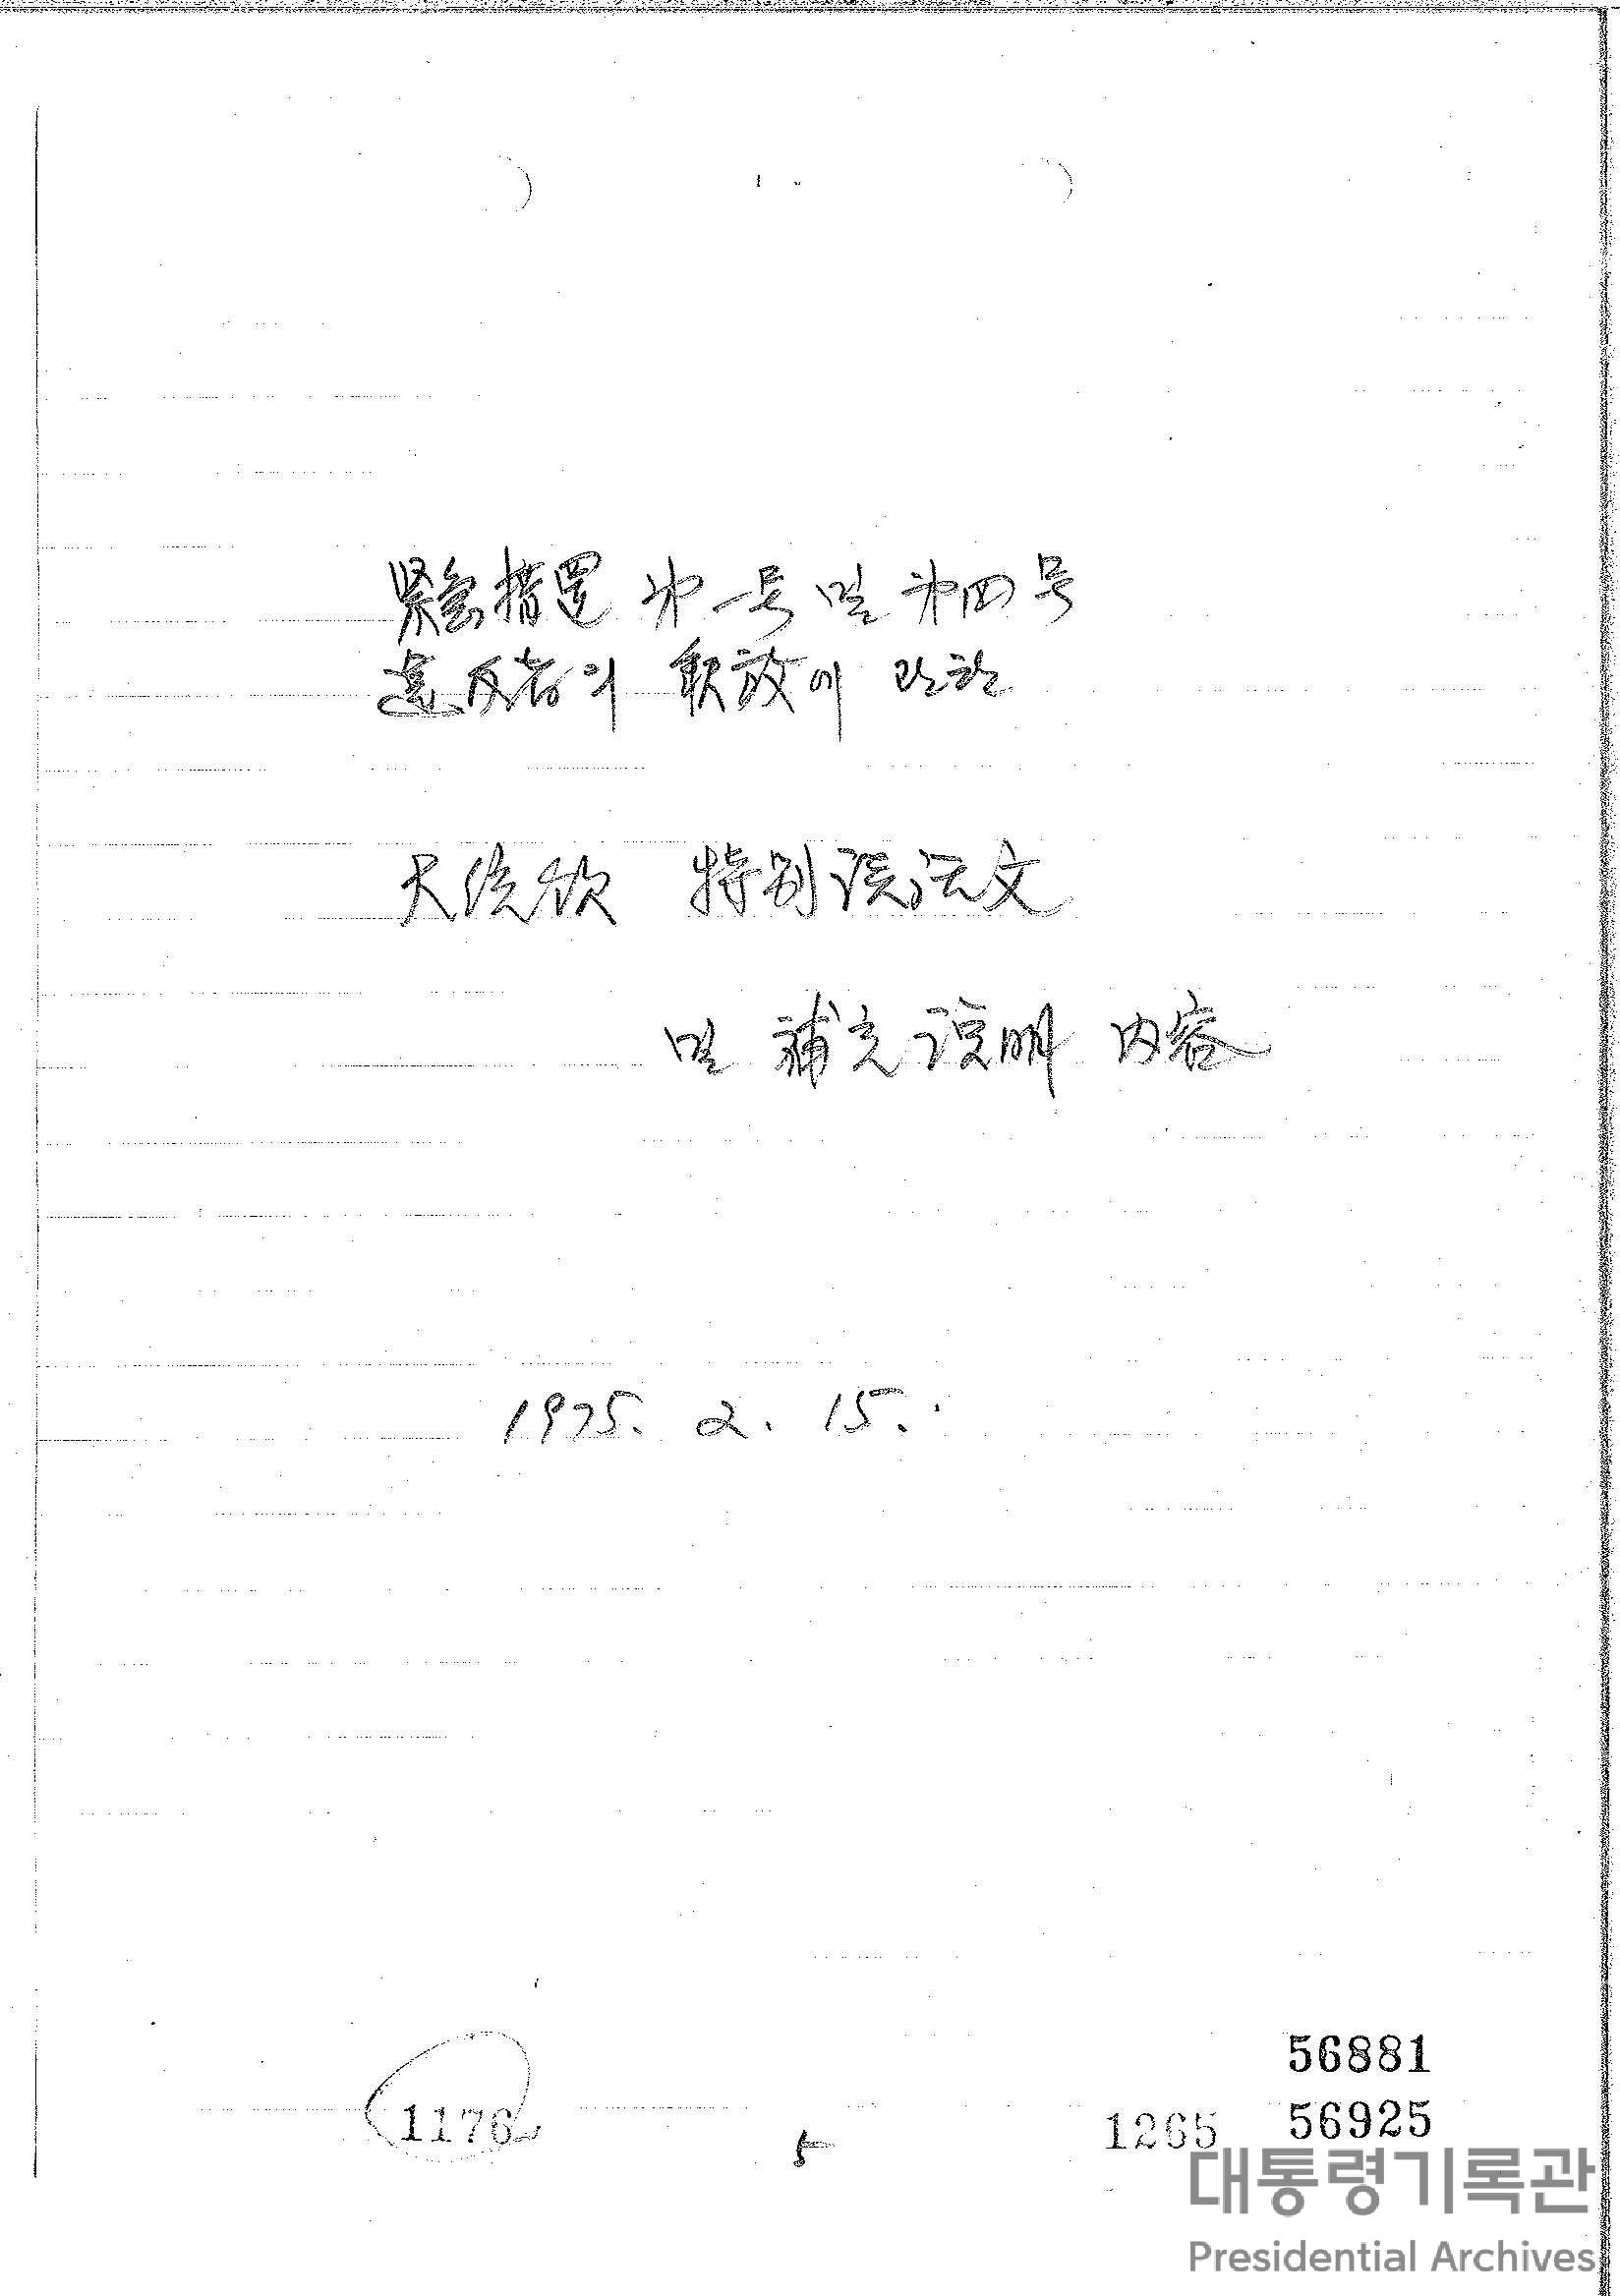 緊急措置 第一号 및 第四号
違反者의 釈放에 관한
大統領 特別談話文
및 補充説明 内容
1975. 2. 15.
56881
1176
5
1265 56925
대통령기록관
Presidential Archives